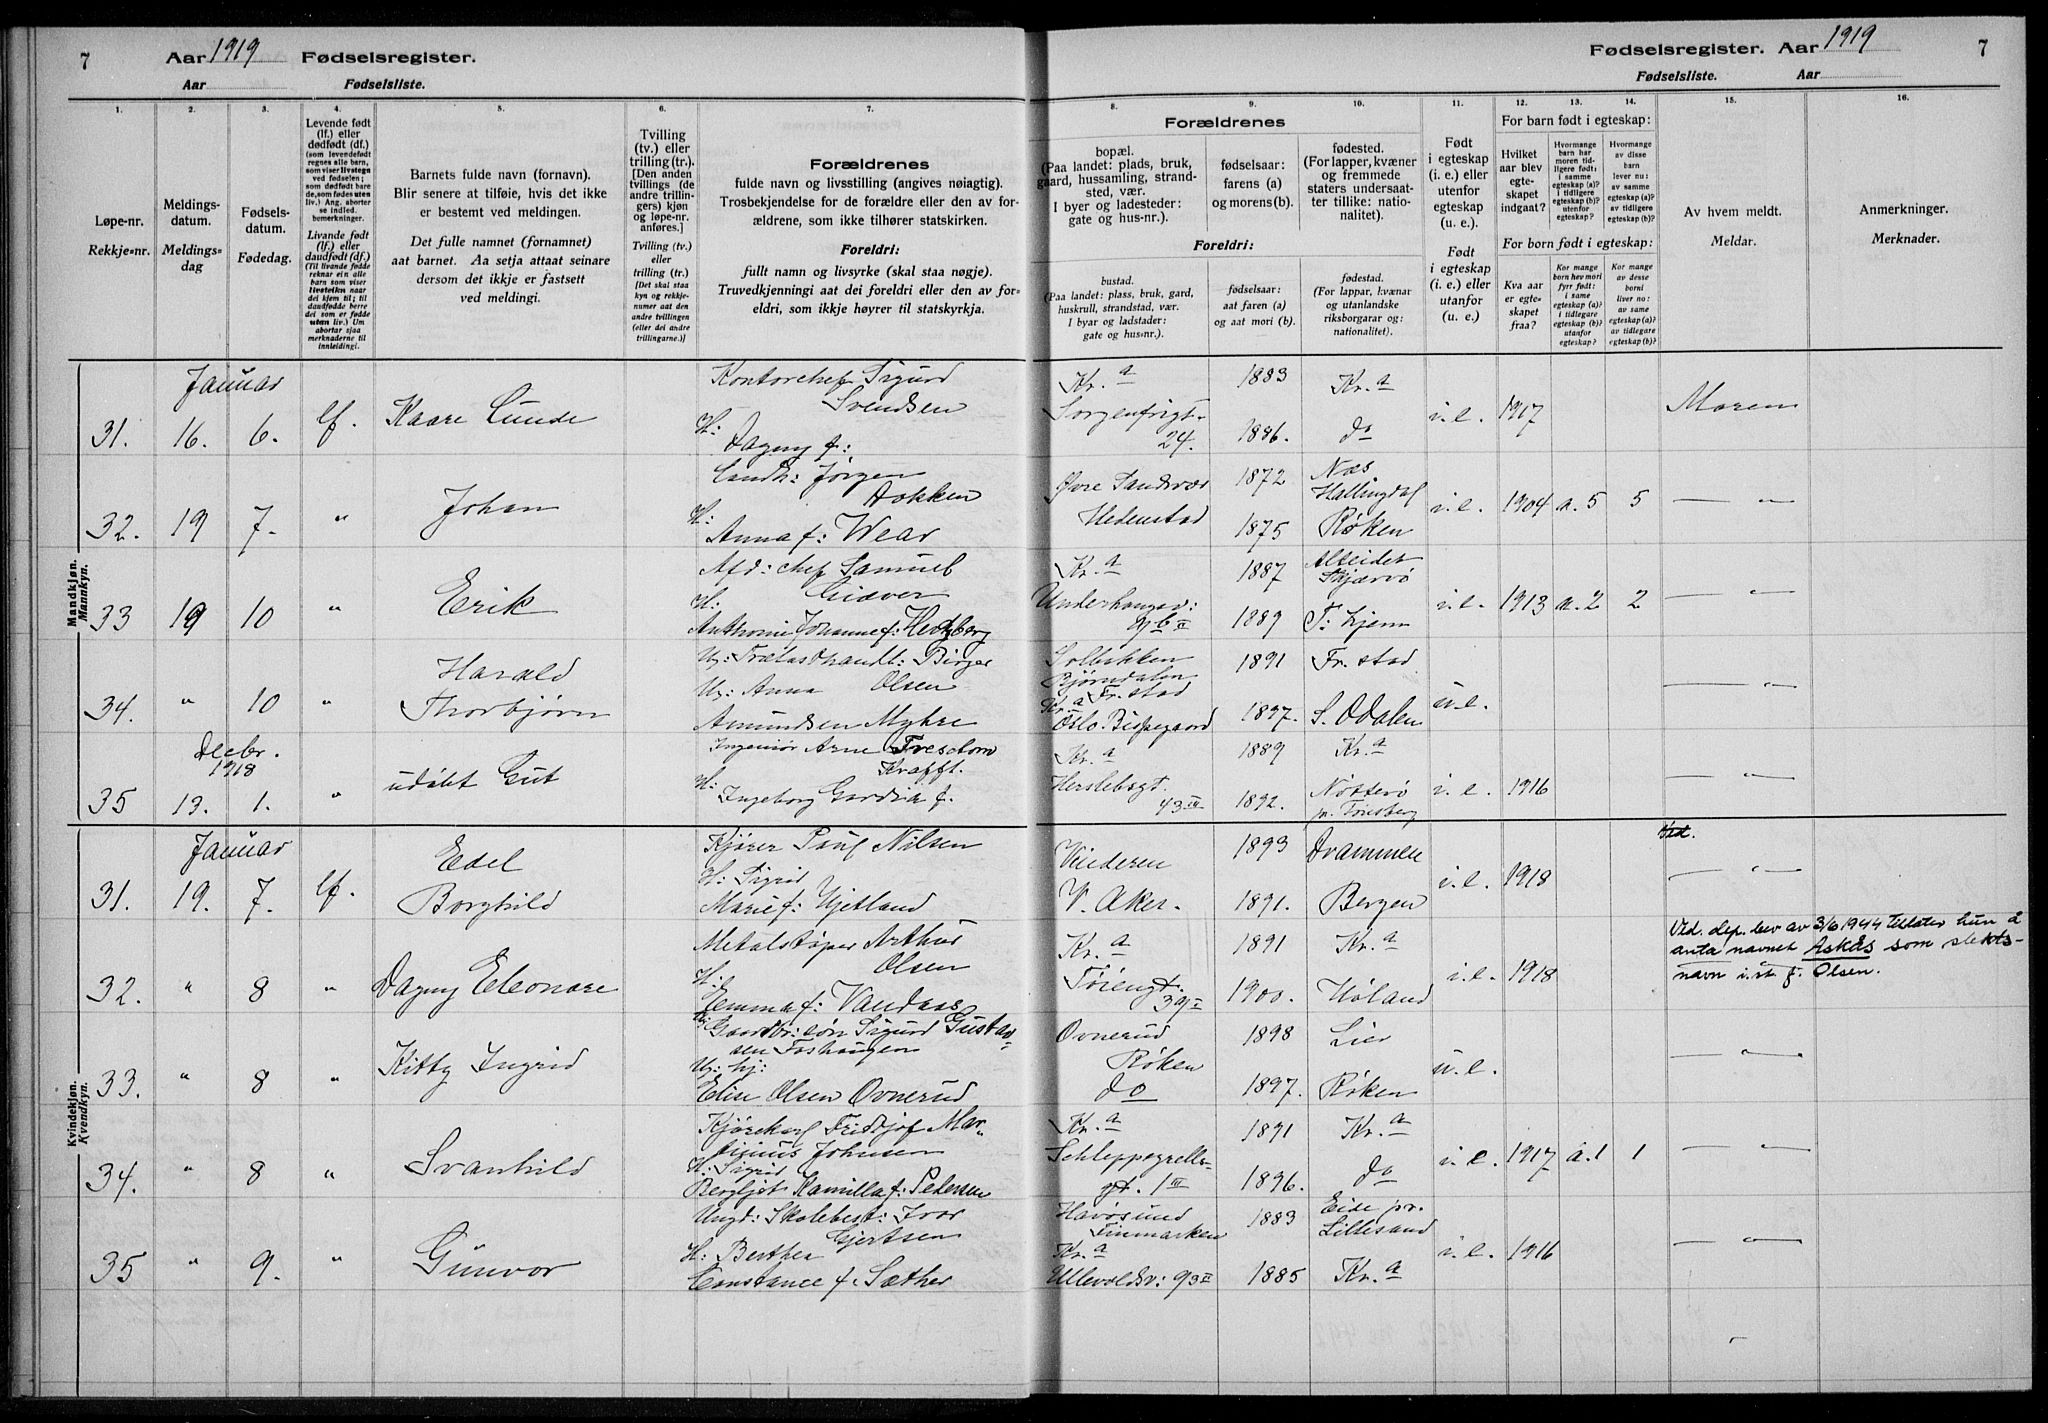 7 Aar 1919 Fødselsregister.
Aar Fødselsliste.
Fødselsregister. Aar 1919 7
Fødselsliste. Aar
1. 2. 3. 4. 5. 6. 7. 8. 9. 10. 11. 12. 13. 14. 15. 16.
Løpe-nr.
Rekkje-nr.
Meldings-
datum.
Meldings-
dag
Fødsels-
datum.
Fødedag.
Levende født
(lf.) eller
dødfødt (df.)
(som levendefødt
regnes alle barn,
som viser livstegn
ved fødselen;
som dødfødt bare
de, som fødes uten
liv.) Ang. aborter
se indled.
bemerkninger.
Livande født
(lf.) eller
daudfødt (df.)
(Til livande fødde
reknar ein alle
barn som viser
livsteikn naar
dei kjem til; til
daudfødde berre
dei som er fødde
utan liv.) Um
abortar sjaa
merknaderne til
innleidingi.
Barnets fulde navn (fornavn).
Blir senere at tilføie, hvis det ikke
er bestemt ved meldingen.
Det fulle namnet (fornamnet)
aat barnet. Aa setja attaat seinare
dersom det ikkje er fastsett
ved meldingi.
Tvilling
(tv.) eller
trilling (tr.).
[Den anden
tvillings (de
andre trillin-
gers) kjøn
og løpe-nr.
anføres.]
Tvilling (tv.)
eller
trilling (tr.)
[Det skal staa
kyn og rekkje-
numer aat den
andre tvillingen
(eller dei andre
trillingarne.)]
Forældrenes
fulde navn og livsstilling (angives nøiagtig).
Trosbekjendelse for de forældre eller den av for-
ældrene, som ikke tilhører statskirken.
Foreldri:
fullt namn og livsyrke (skal staa nøgje).
Truvedkjenningi aat dei foreldri eller den av for-
eldri, som ikkje høyrer til statskyrkja.
Forældrenes
bopæl.
(Paa landet: plads, bruk,
gaard, hussamling, strand-
sted, vær.
I byer og ladesteder:
gate og hus-nr.).
fødselsaar:
farens (a)
og morens (b).
fødested.
(For lapper, kvæner
og fremmede
staters undersaat-
ter tillike: natio-
nalitet).
Foreldri:
bustad.
(Paa landet: plass, bruk, gard,
huskrull, strandstad, vær.
I byar og ladstader:
gate og hus-nr.).
fødselsaar:
aat faren (a)
og aat mori (b).
fødestad.
(For lappar, kvænar
og utanlandske
riksborgarar og:
nationalitet).
Født
i egteskap
(i. e.) eller
utenfor
egteskap
(u. e.).
Født
i egteskap
(i. e.) eller
utanfor
(u. e.).
For barn født i egteskap:
Hvilket
aar blev
egte-
skapet
indgaat?
Hvormange
barn har
moren tid-
ligere født:
i samme
egteskap (a)?
i tidligere
egteskap (b)?
utenfor
egteskap?
Hvormange
av disse
barn
lever nu:
av samme
egteskap (a)?
av tidligere
egteskap (b)?
For born født i egteskap:
Kva aar
er egte-
skapet
fraa?
Kor mange
born hev mori
fyrr født:
i same
egteskap (a)?
i tidlegare
egteskap (b)?
utanfor
egteskap?
Kor mange
av desse
borni
liver no:
av same
egteskap (a)?
av tidlegare
egteskap (b)?
Av hvem meldt.
Meldar.
Anmerkninger.
Merknader.
Mandkjøn.
Mannkyn.
Januar
31. 16. 6. lf. Kaare Lunde
Kontorchef Sigurd
Svendsen
H: Dagny f:
Kr.a
Sorgenfrigt.
24.
1883
1886.
Kr.a
do
i.e. 1917
Moren
32. 19 7. " Johan
Landh: Jörgen
Dokken
H: Anna f: Wear
Øvre Sandsvær
Hedenstad
1872
1875
Næs
Hallingdal
Røken
i.e. 1904 a. 5 5
— " —
33 19 10 " Erik
Afd: chef Samuel
Giæver
H: Anthonie Johanne f: Hertzberg
Kr.a
Underhaugsv:
9 b II
1887
1889
Alteidet
Skjærvö
T: hjem
i.e. 1913 a. 2 2
— " —
34. " 10 " Harald
Thorbjørn
Ug: Trælasthandl: Birger
Olsen
Ug: Anna
Amundsen Myhre
Solbakken
Bjørndalen
Fr. stad
Kr.a
Oslo. Bispegaard
1891
1897.
Fr. stad
S. Odalen
u.e.
— " —
Decbr.
1918
35 13. 1. " udöbt Gut
Ingeniør Arne Tresdorn
Krafft.
H: Ingeborg Gordia f.
Kr.a
Herslebsgt.
43 III
1889
1892.
Kr.a
Nötterö
pr. Tönsberg
i.e. 1916
— " —
Kvindekjøn.
Kvendkyn.
Januar
31. 19. 7. lf. Edel
Borghild
Kjører Paul Nilsen
H: Sigrid
Marie f: Hjetland
Vinderen
V. Aker.
1893
1891.
Drammen
Bergen
i.e. 1918
— " —
32. " 8 " Dagny Eleonore
Metalstøper Arthur
Olsen
H: Emma f: Vandaas
Kr.a
Töiengt.
39 I
1891
1900.
Kr.a
Höland
i.e. 1918
Ved. dep. brev av 3/6 1944 tillates hun å
anta navnet Askås som slekts-
navn i. st. f. Olsen.
33. " 8 " Kitty Ingrid
Ug: Gaardbr: søn Sigurd Gustav-
sen Foshaugen
Ug: hj:
Elise Olsen Ovnerud
Ovnerud
Røken
do
1898
1897.
Lier
Røken
u.e.
— " —
34. " 8 " Svanhild
Kjørekarl Fridtjof Mar-
sinius Johnsen
H: Sigrid
Bergljot Kamilla f: Pedersen
Kr.a
Schleppegrells-
gt. 1 III
1891
1896.
Kr.a
do
i. e. 1917 a. 1 1
— " —
35 " 9. " Gunvor
Ungd: Skolebest: Ivar
Gjertsen
H: Berthea
Constance f. Sæther
Havösund
Finmarken
Kr.a
Ullevoldsv: 93 II
1883
1885
Eide pr.
Lillesand
Kr.a
i.e. 1916
— " —